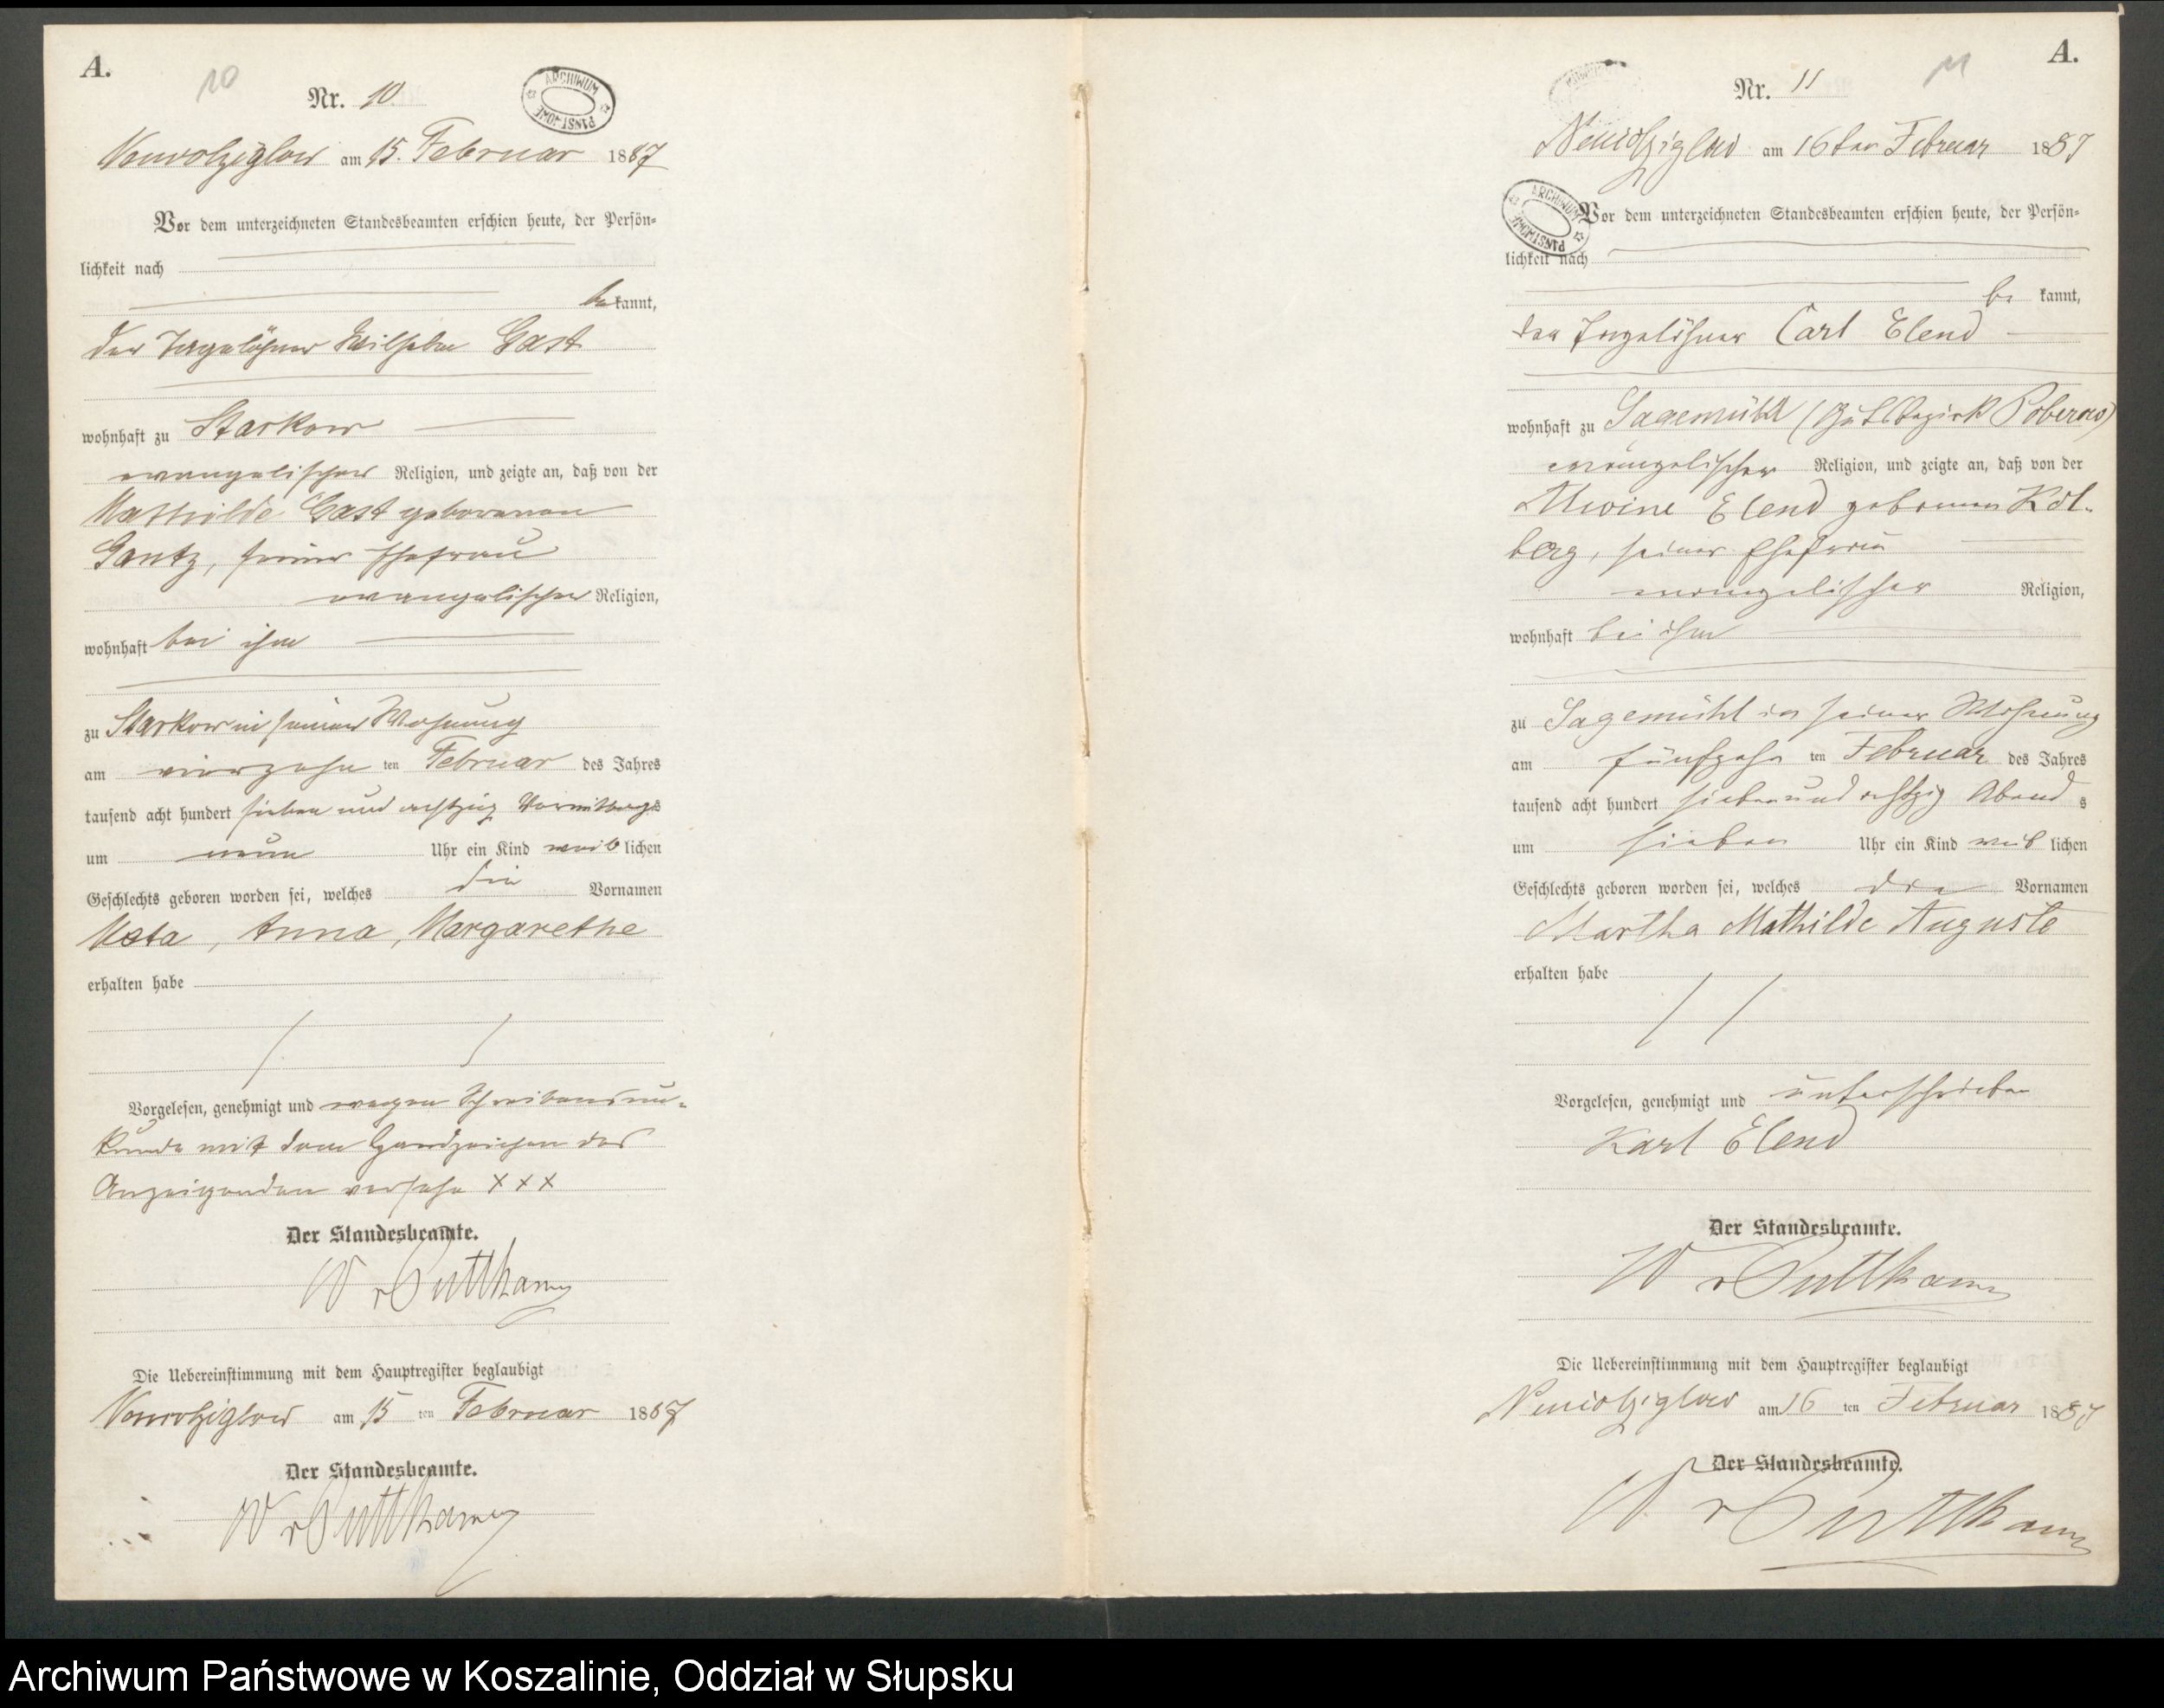 A.
10
Nr. 10
ARCHIWUM PAŃSTWOWE
Neuwolziglow am 15. Februar 1887
Vor dem unterzeichneten Standesbeamten erschien heute, der Persön-
lichkeit nach
bekannt,
der Tagelöhner Wilhelm Gast
wohnhaft zu Starkow
evangelischer Religion, und zeigte an, daß von der
Mathilde Gast geborenen
Gantz, seiner Ehefrau
evangelischer Religion,
wohnhaft bei ihm
zu Starkow in seiner Wohnung
am vierzehn ten Februar des Jahres
tausend acht hundert sieben und achtzig Vormittags
um neun Uhr ein Kind weiblichen
Geschlechts geboren worden sei, welches die Vornamen
Meta, Anna, Margarethe
erhalten habe
Vorgelesen, genehmigt und wegen Schreibensun-
kunde mit dem Handzeichen des
Anzeigenden versehn XXX
Der Standesbeamte.
W v Puttkamer
Die Uebereinstimmung mit dem Hauptregister beglaubigt
Neuwolziglow am 15 ten Februar 1887
Der Standesbeamte.
W v Puttkamer
A.
11
Nr. 11
ARCHIWUM PAŃSTWOWE
Neuwolziglow am 16ten Februar 1887
Vor dem unterzeichneten Standesbeamten erschien heute, der Persön-
lichkeit nach
be kannt,
der Tagelöhner Carl Elend
wohnhaft zu Sagemühl (Gutsbezirk Poberow)
evangelischer Religion, und zeigte an, daß von der
Alwine Elend geborenen Kol-
berg, seiner Ehefrau
evangelischer Religion,
wohnhaft bei ihm
zu Sagemühl in seiner Wohnung
am fünfzehn ten Februar des Jahres
tausend acht hundert sieben und achtzig Abends
um sieben Uhr ein Kind weiblichen
Geschlechts geboren worden sei, welches die Vornamen
Martha Mathilde Auguste
erhalten habe
Vorgelesen, genehmigt und unterschrieben
Karl Elend
Der Standesbeamte.
W v Puttkamer
Die Uebereinstimmung mit dem Hauptregister beglaubigt
Neuwolziglow am 16 ten Februar 1887
Der Standesbeamte.
W v Puttkamer
Archiwum Państwowe w Koszalinie, Oddział w Słupsku